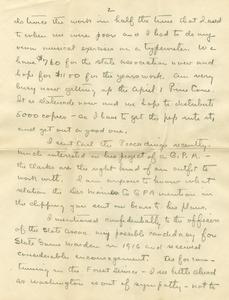 2
do twice the work in half the time that I used
to when we were poor and I had to do my
own musical exercises on a typewriter. We
have $760 for the state association now and
hope for $1100 for the years work. Am very
busy now getting up the April 1 Pine Cone.
It is statewide now and we hope to distribute
5000 copies – as I have to get the pep into it
and get out a good one.
I sent Carl the Breedings recently;
much interested in his project of a G.P.A. –
the Clarks are the right kind of an outfit to
work with. I am anxious to know what
relation the
the clipping you sent me bears to his plans.
I mentioned confidentially to the officers
of the State Assn. my possible candidacy for
State Game Warden in 1916 and received
considerable encouragement. As for con-
tinuing in the Forest Service – I see little ahead
as Washington is out of sympathy – not to